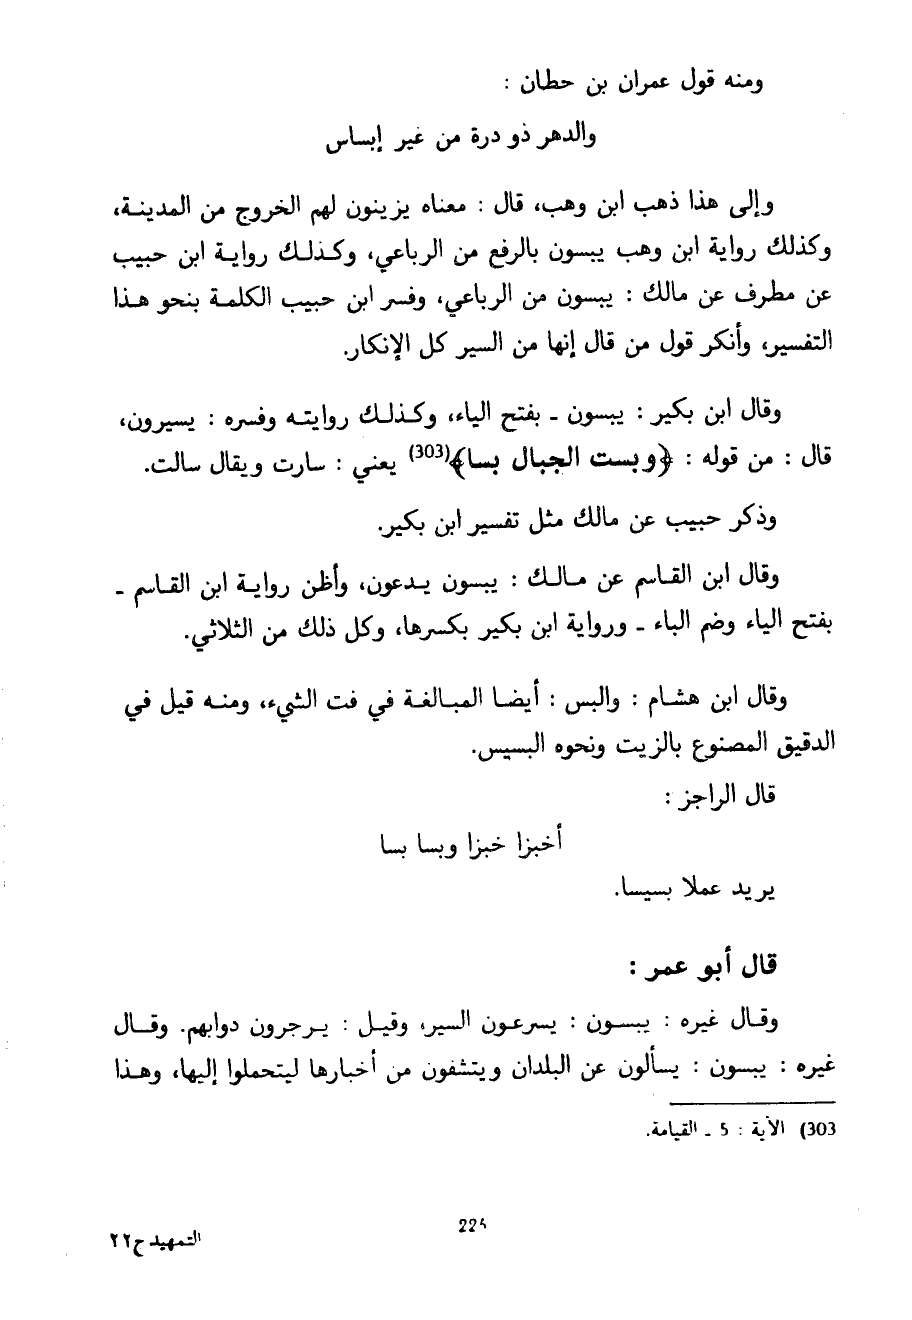 ومنه قول عمران بن حطان :
والدهر ذو درة من غير إبساس
وإلى هذا ذهب ابن وهب، قال : معناه يزينون لهم الخروج من المدينة،
وكذلك رواية ابن وهب يبسون بالرفع من الرباعي، وكذلك رواية ابن حبيب
عن مطرف عن مالك : يبسون من الرباعي، وفسر ابن حبيب الكلمة بنحو هذا
التفسير، وأنكر قول من قال إنها من السير كل الإنكار.
وقال ابن بكير : يبسون ـ بفتح الياء، وكذلك روايته وفسره : يسيرون،
قال : من قوله : ﴿وبست الجبال بسا﴾(303) يعني : سارت ويقال سالت.
وذكر حبيب عن مالك مثل تفسير ابن بكير.
وقال ابن القاسم عن مالك : يبسون يدعون، وأظن رواية ابن القاسم ـ
بفتح الياء وضم الباء ـ ورواية ابن بكير بكسرها، وكل ذلك من الثلاثي.
وقال ابن هشام : والبس : أيضا المبالغة في فت الشيء، ومنه قيل في
الدقيق المصنوع بالزيت ونحوه البسيس.
قال الراجز :
أخبزا خبزا وبسا بسا
يريد عملا بسيسا.
قال أبو عمر :
وقال غيره : يبسون : يسرعون السير، وقيل : يرجرون دوابهم. وقال
غيره : يبسون : يسألون عن البلدان ويتشفون من أخبارها ليتحملوا إليها، وهذا
303) الآية : 5 ـ القيامة.
التمهيد ج٢٢